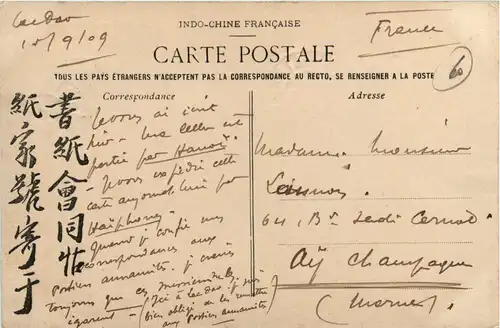 Laodao
10/9/09
INDO-CHINE FRANÇAISE
France
CARTE POSTALE
TOUS LES PAYS ÉTRANGERS N'ACCEPTENT PAS LA CORRESPONDANCE AU RECTO, SE RENSEIGNER A LA POSTE
60
Correspondance
Je vous ai écrit
hier - ma lettre est
partie par Hanoï.
- Je vous expédie cette
carte aujourd'hui par
Haïphong -
Quand je confie mes
correspondances aux
postiers annamites. je crains
toujours que ces messieurs les
égarent -
(Ici à je suis
bien obligé de les remettre
aux postiers annamites)
書紙會同
紙家號寄于
Adresse
Madame Monsieur
64, Bd Sadi Carnot
Aÿ Champagne
(Marne)